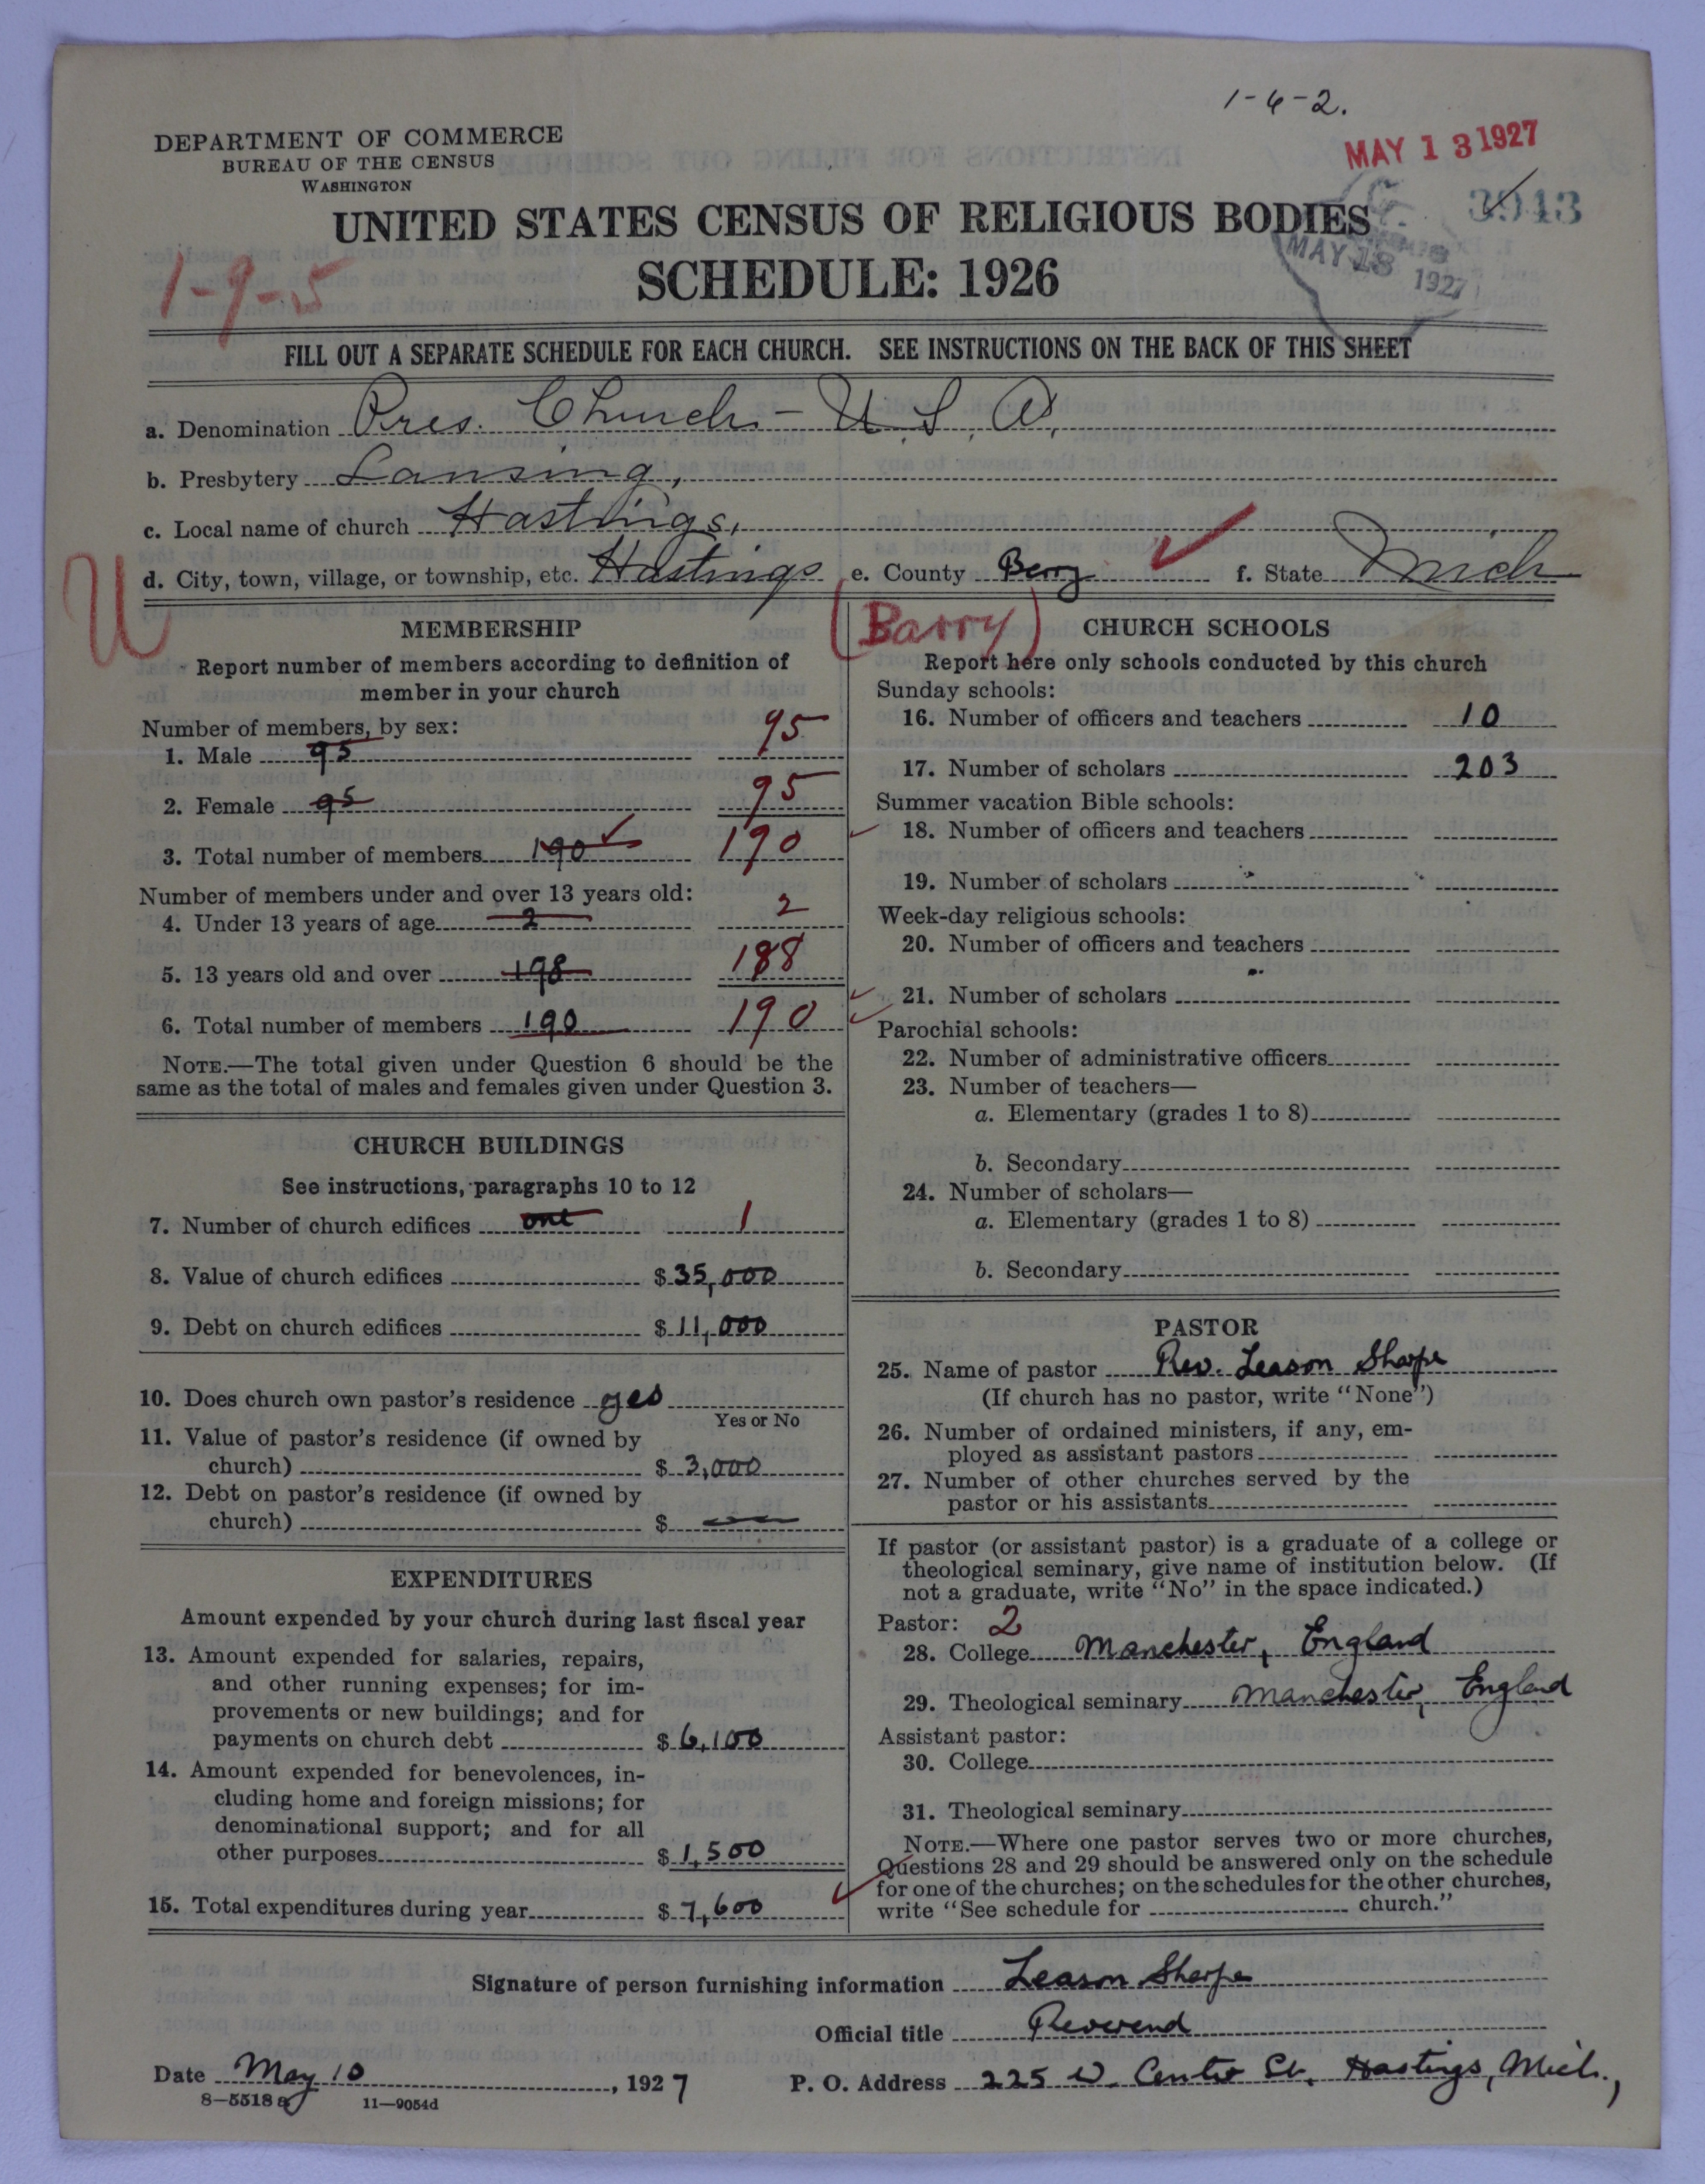 1-6-2.
DEPARTMENT OF COMMERCE
BUREAU OF THE CENSUS
WASHINGTON
MAY 13 1927
3943
UNITED STATES CENSUS OF RELIGIOUS BODIES
MAY 18 1927
SCHEDULE: 1926
1-9-5
FILL OUT A SEPARATE SCHEDULE FOR EACH CHURCH. SEE INSTRUCTIONS ON THE BACK OF THIS SHEET
a. Denomination Pres. Church - U.S.A.
b. Presbytery Lansing,
c. Local name of church Hastings,
d. City, town, village, or township, etc. Hastings e. County Berry f. State Mich
U
(Barry)
MEMBERSHIP
Report number of members according to definition of
member in your church
Number of members, by sex:
1. Male 95 95
2. Female 95 95
3. Total number of members 190 190
Number of members under and over 13 years old:
4. Under 13 years of age 2 2
5. 13 years old and over 198 188
6. Total number of members 190 190
NOTE.—The total given under Question 6 should be the
same as the total of males and females given under Question 3.
CHURCH BUILDINGS
See instructions, paragraphs 10 to 12
7. Number of church edifices one 1
8. Value of church edifices $ 35,000
9. Debt on church edifices $ 11,000
10. Does church own pastor's residence yes
Yes or No
11. Value of pastor's residence (if owned by
church) $ 3,000
12. Debt on pastor's residence (if owned by
church) $
EXPENDITURES
Amount expended by your church during last fiscal year
13. Amount expended for salaries, repairs,
and other running expenses; for im-
provements or new buildings; and for
payments on church debt $ 6,100
14. Amount expended for benevolences, in-
cluding home and foreign missions; for
denominational support; and for all
other purposes $ 1,500
15. Total expenditures during year $ 7,600
CHURCH SCHOOLS
Report here only schools conducted by this church
Sunday schools:
16. Number of officers and teachers 10
17. Number of scholars 203
Summer vacation Bible schools:
18. Number of officers and teachers
19. Number of scholars
Week-day religious schools:
20. Number of officers and teachers
21. Number of scholars
Parochial schools:
22. Number of administrative officers
23. Number of teachers—
a. Elementary (grades 1 to 8)
b. Secondary
24. Number of scholars—
a. Elementary (grades 1 to 8)
b. Secondary
PASTOR
25. Name of pastor Rev. Leason Sharpe
(If church has no pastor, write "None")
26. Number of ordained ministers, if any, em-
ployed as assistant pastors
27. Number of other churches served by the
pastor or his assistants
If pastor (or assistant pastor) is a graduate of a college or
theological seminary, give name of institution below. (If
not a graduate, write "No" in the space indicated.)
Pastor: 2
28. College Manchester, England
29. Theological seminary Manchester, England
Assistant pastor:
30. College
31. Theological seminary
NOTE.—Where one pastor serves two or more churches,
Questions 28 and 29 should be answered only on the schedule
for one of the churches; on the schedules for the other churches,
write "See schedule for church."
Signature of person furnishing information Leason Sharpe
Official title Reverend
Date May 10, 1927 P. O. Address 225 W. Center St., Hastings, Mich.,
8-5518 a 11-9054d